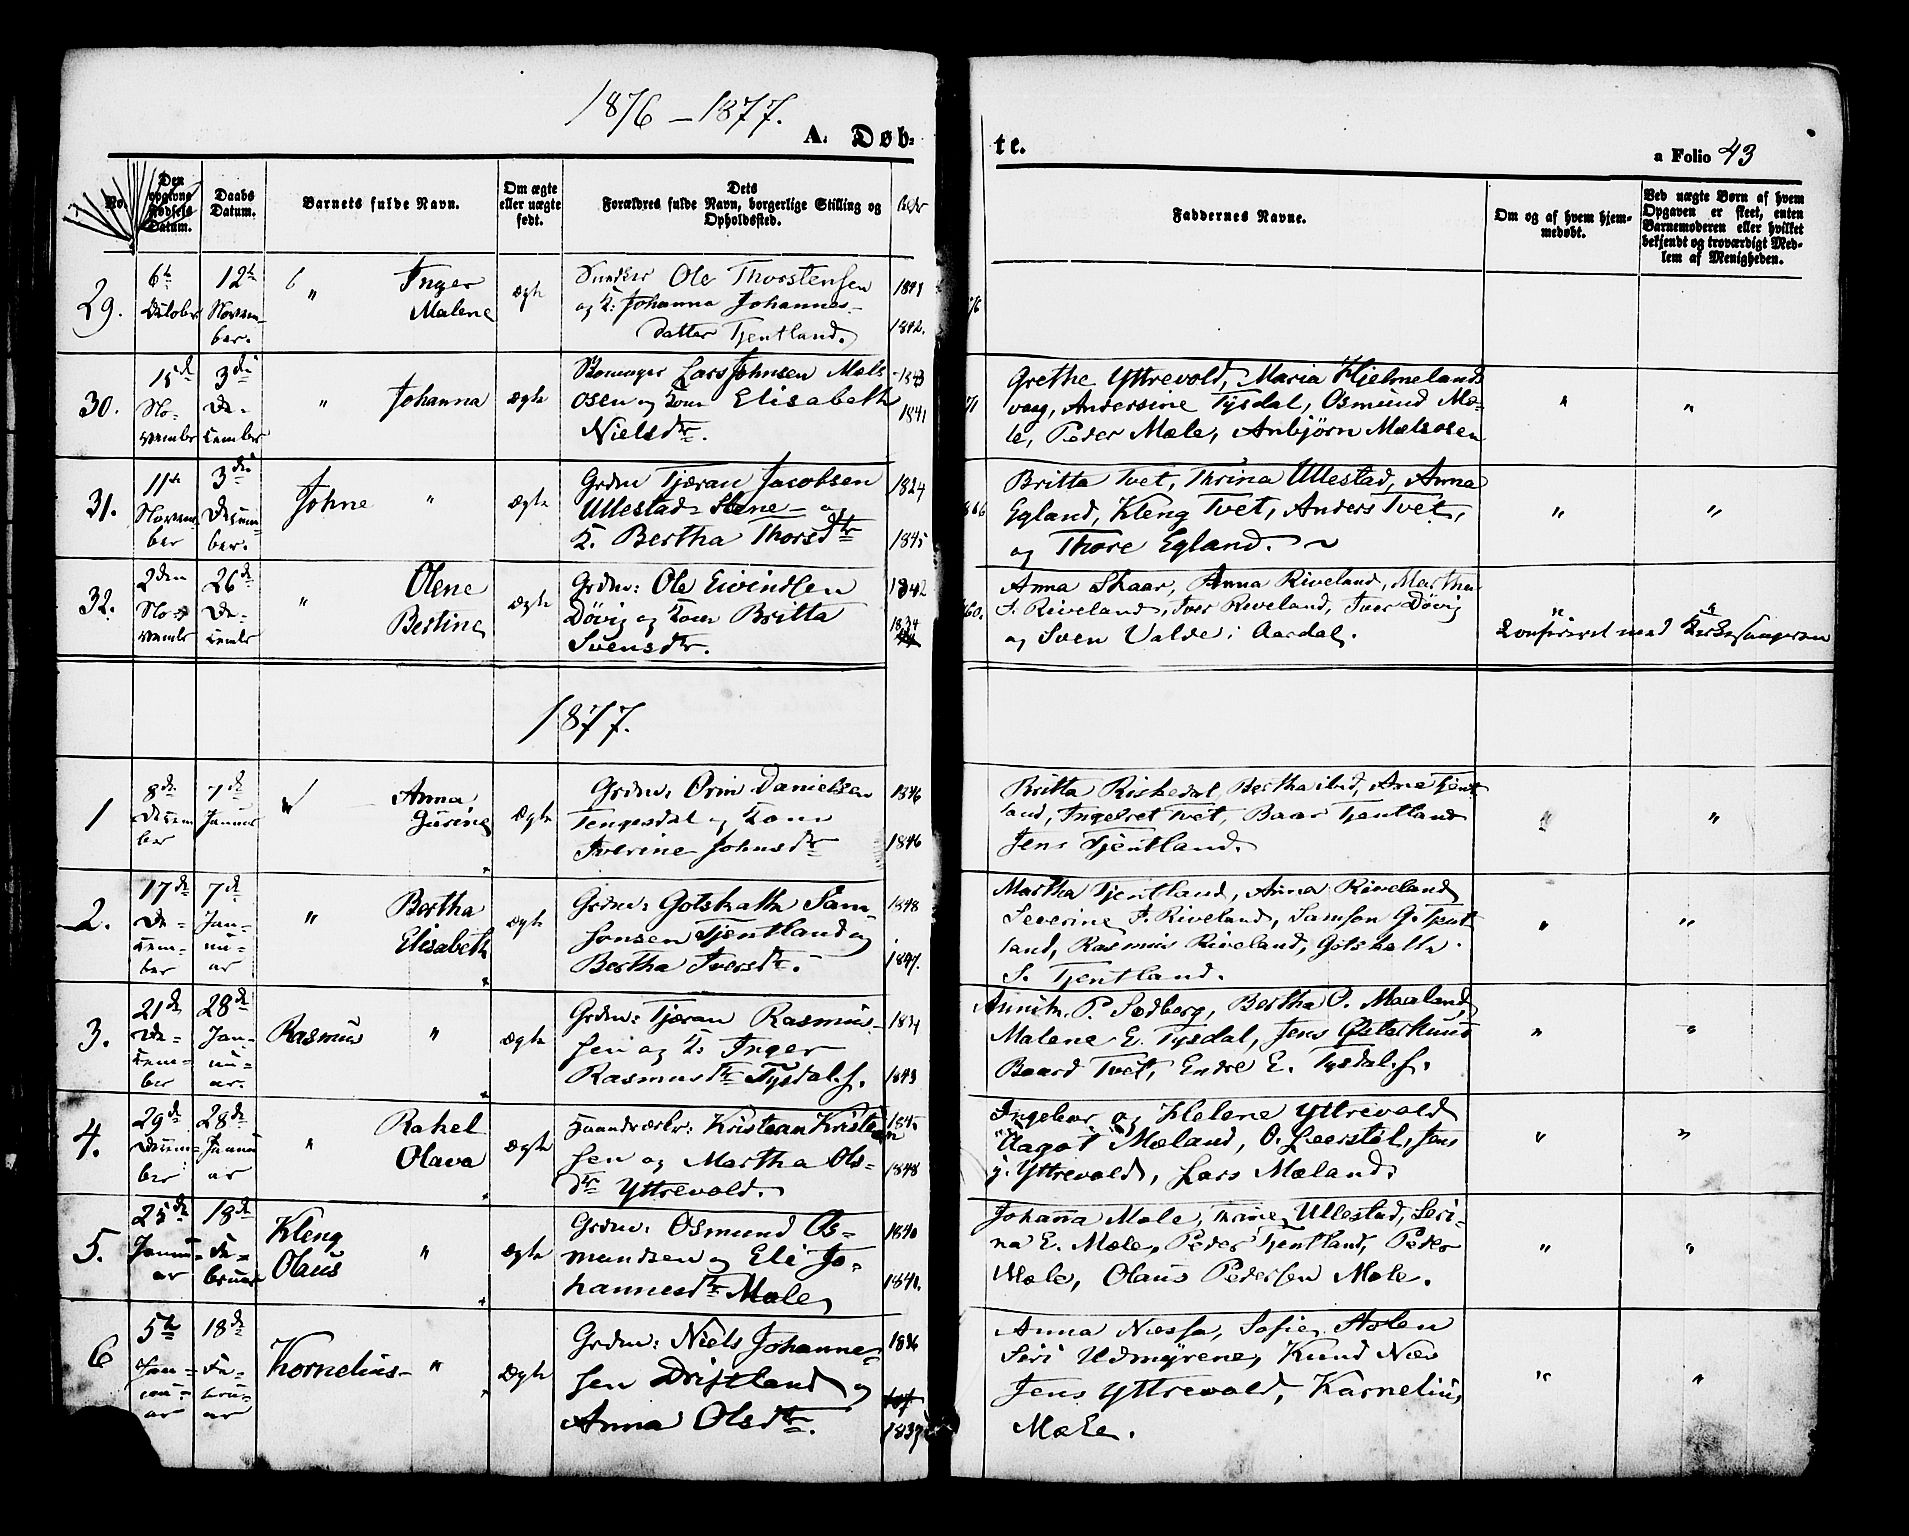 1876 – 1877.
A. Døb-
te.
a Folio 43
No.
Den opgivne Fødsels Datum.
Daabs Datum.
Barnets fulde Navn.
Om ægte eller uægte født.
Dets Forældres fulde Navn, borgerlige Stilling og Opholdssted.
Faddernes Navne.
Om og af hvem hjemmedøbt.
Ved uægte Børn af hvem Opgaven er skeet, enten Barnemoderen eller hvilket bekjendt og troværdigt Medlem af Menigheden.
29.
6te
October
12te
Novem-
ber.
"
Inger
Malene
Ægte
Ole Thorstensen
og K: Johanna Johannes-
datter Tjentland.
1842.
30.
15de
No-
vember
3die
De-
cember
"
Johanna
Ægte
Lars Johnsen Mæls-
osen og Kone Elisabeth
Nielsdtr.
1843
1841
Grethe Yttrevold, Maria Hjelmelands
vaag, Andersine Tysdal, Osmund Mæ-
le, Peder Mæle, Anbjørn Mælsosen
"
"
31.
11te
Novem-
ber
3die
Decem-
ber.
Johne
"
Ægte
Grdm Tjæran Jacobsen
Ullestad-Stene- og
K. Bertha Thorsdtr
1824
1845
Britta Tvet, Thrina Ullestad, Anna
Egland, Kleng Tvet, Anders Tvet,
og Thore Egland.
"
"
32.
2den
No-
vember
26de
De-
cembr
"
Olene
Bertine
Ægte
Grdm: Ole Eivindsen
Døvig og Kone Britta
Svensdtr.
1842
1834
60.
Anna Skaar, Anna Riveland, Martha
I. Riveland, Iver Riveland, Iver Døvig
og Sven Valde i Aardal.
"
"
Confereret med Kirkesangeren
1877.
1
8de
Decem
ber
7de
Januar
"
Anna
Gurine
Ægte
Grdm: Orm Danielsen
Tengesdal og Kone
Iverine Johnsdtr
1846
1846
Britta Riskedal, Bertha ibid, Ane Tjent-
land, Ingebret Tvet, Baar Tjentland
Jens Tjentland.
"
"
2.
17de
De-
cem-
ber
7de
Jan-
nu-
ar
"
Bertha
Elisabeth
Ægte
Grdm: Gotskalk Sam-
sonsen Tjentland og
Bertha Iversdtr.
1848
1847.
Martha Tjentland, Anna Riveland
Severine I. Riveland, Samson G. Tjent
land, Rasmus Riveland, Gotskalk
S. Tjentland.
"
"
3.
21de
De-
cem-
ber
28de
Jan-
nu-
ar.
Rasmus
"
Ægte
Grdm: Tjæran Rasmus-
sen og K: Inger
Rasmusdtr Tysdal.
1843
P. Sedberg, Bertha O. Mæland,
Malene E. Tysdal, Jens Østerhuus
Baard Tvet, Endre E. Tysdal.
"
"
4.
29de
Decem-
ber
28de
Janu
ar
"
Rahel
Olava
Ægte
Haandværkr: Kristian Kristian
sen og Martha Ols-
dtr Yttrevold.
1845
1848
Ingebor og Helene Yttrevold
Aagot Mæland, O. Leerstøl, Jens
J. Yttrevold, Lars Mæland.
"
"
5.
25de
Janu-
ar
18de
Fe-
bruar
Kleng
Olaus
"
Ægte
Grdm: Osmund Os-
mundsen og Eli Jo-
hannesdtr Mæle
1840
1840.
Johanna Mæle, Thrine Ullestad, Seri-
na E. Mæle, Peder Tjentland, Peder
Mæle, Olaus Pedersen Mæle.
"
"
6
5te
Jan-
nu-
ar
18de
Fe-
bru-
ar
Kornelius-
"
Ægte
Grdm: Niels Johanne-
sen Driftland og
Anna Olsdtr.
1836
1839
Anna Næssa, Sofie
Siri Udmyrene, Knud Næs
Jens Yttrevold, Karnelius
Mæle.
"
"